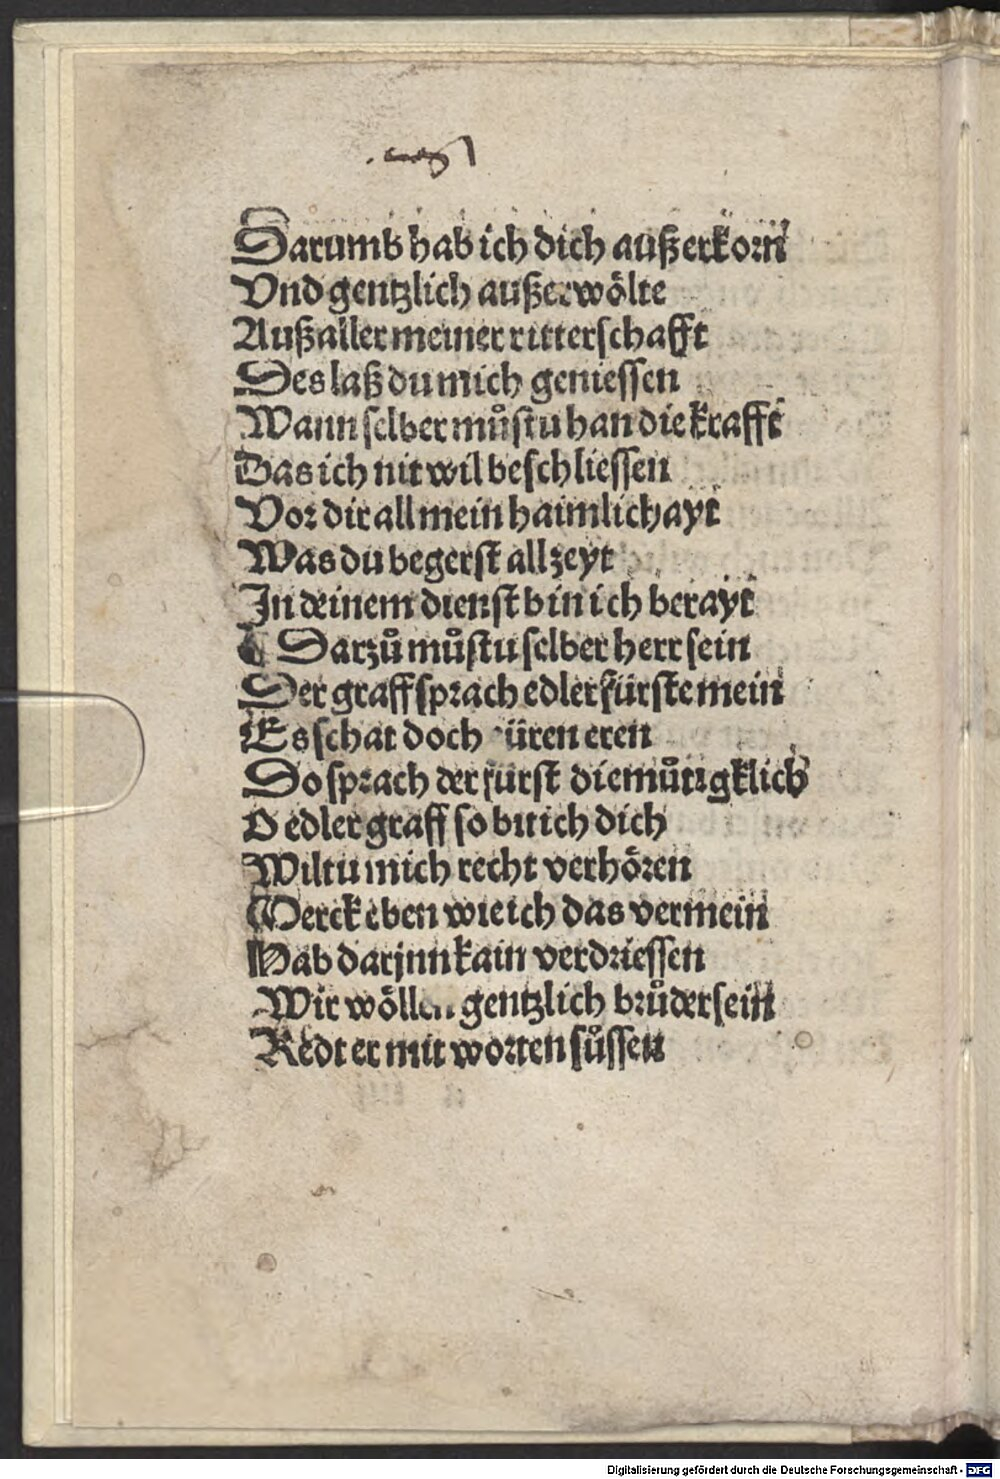 Darumb hab ich dich außerkorn
Vnd gentzlich außerwoͤlte
Auß aller meiner ritterschafft
Des laß du mich geniessen
Wann selber muͦstu han die krafft
Das ich nit wil beschliessen
Vor dir all mein haimlichayt
Was du begerst allzeyt
In deinem dienst bin ich berayt
Darzuͦ muͦstu selber herr sein
Der graff sprach edler fürste mein
Es schat doch üren eren
Do sprach der fürst diemuͦtigklich
O edler graff so bit ich dich
Wiltu mich recht verhoͤren
Merck eben wie ich das vermein
Hab darjnn kain verdriessen
Wir woͤllen gentzlich bruͦder sein
Redt er mit worten suͦssen
Digitalisierung gefördert durch die Deutsche Forschungsgemeinschaft - DFG